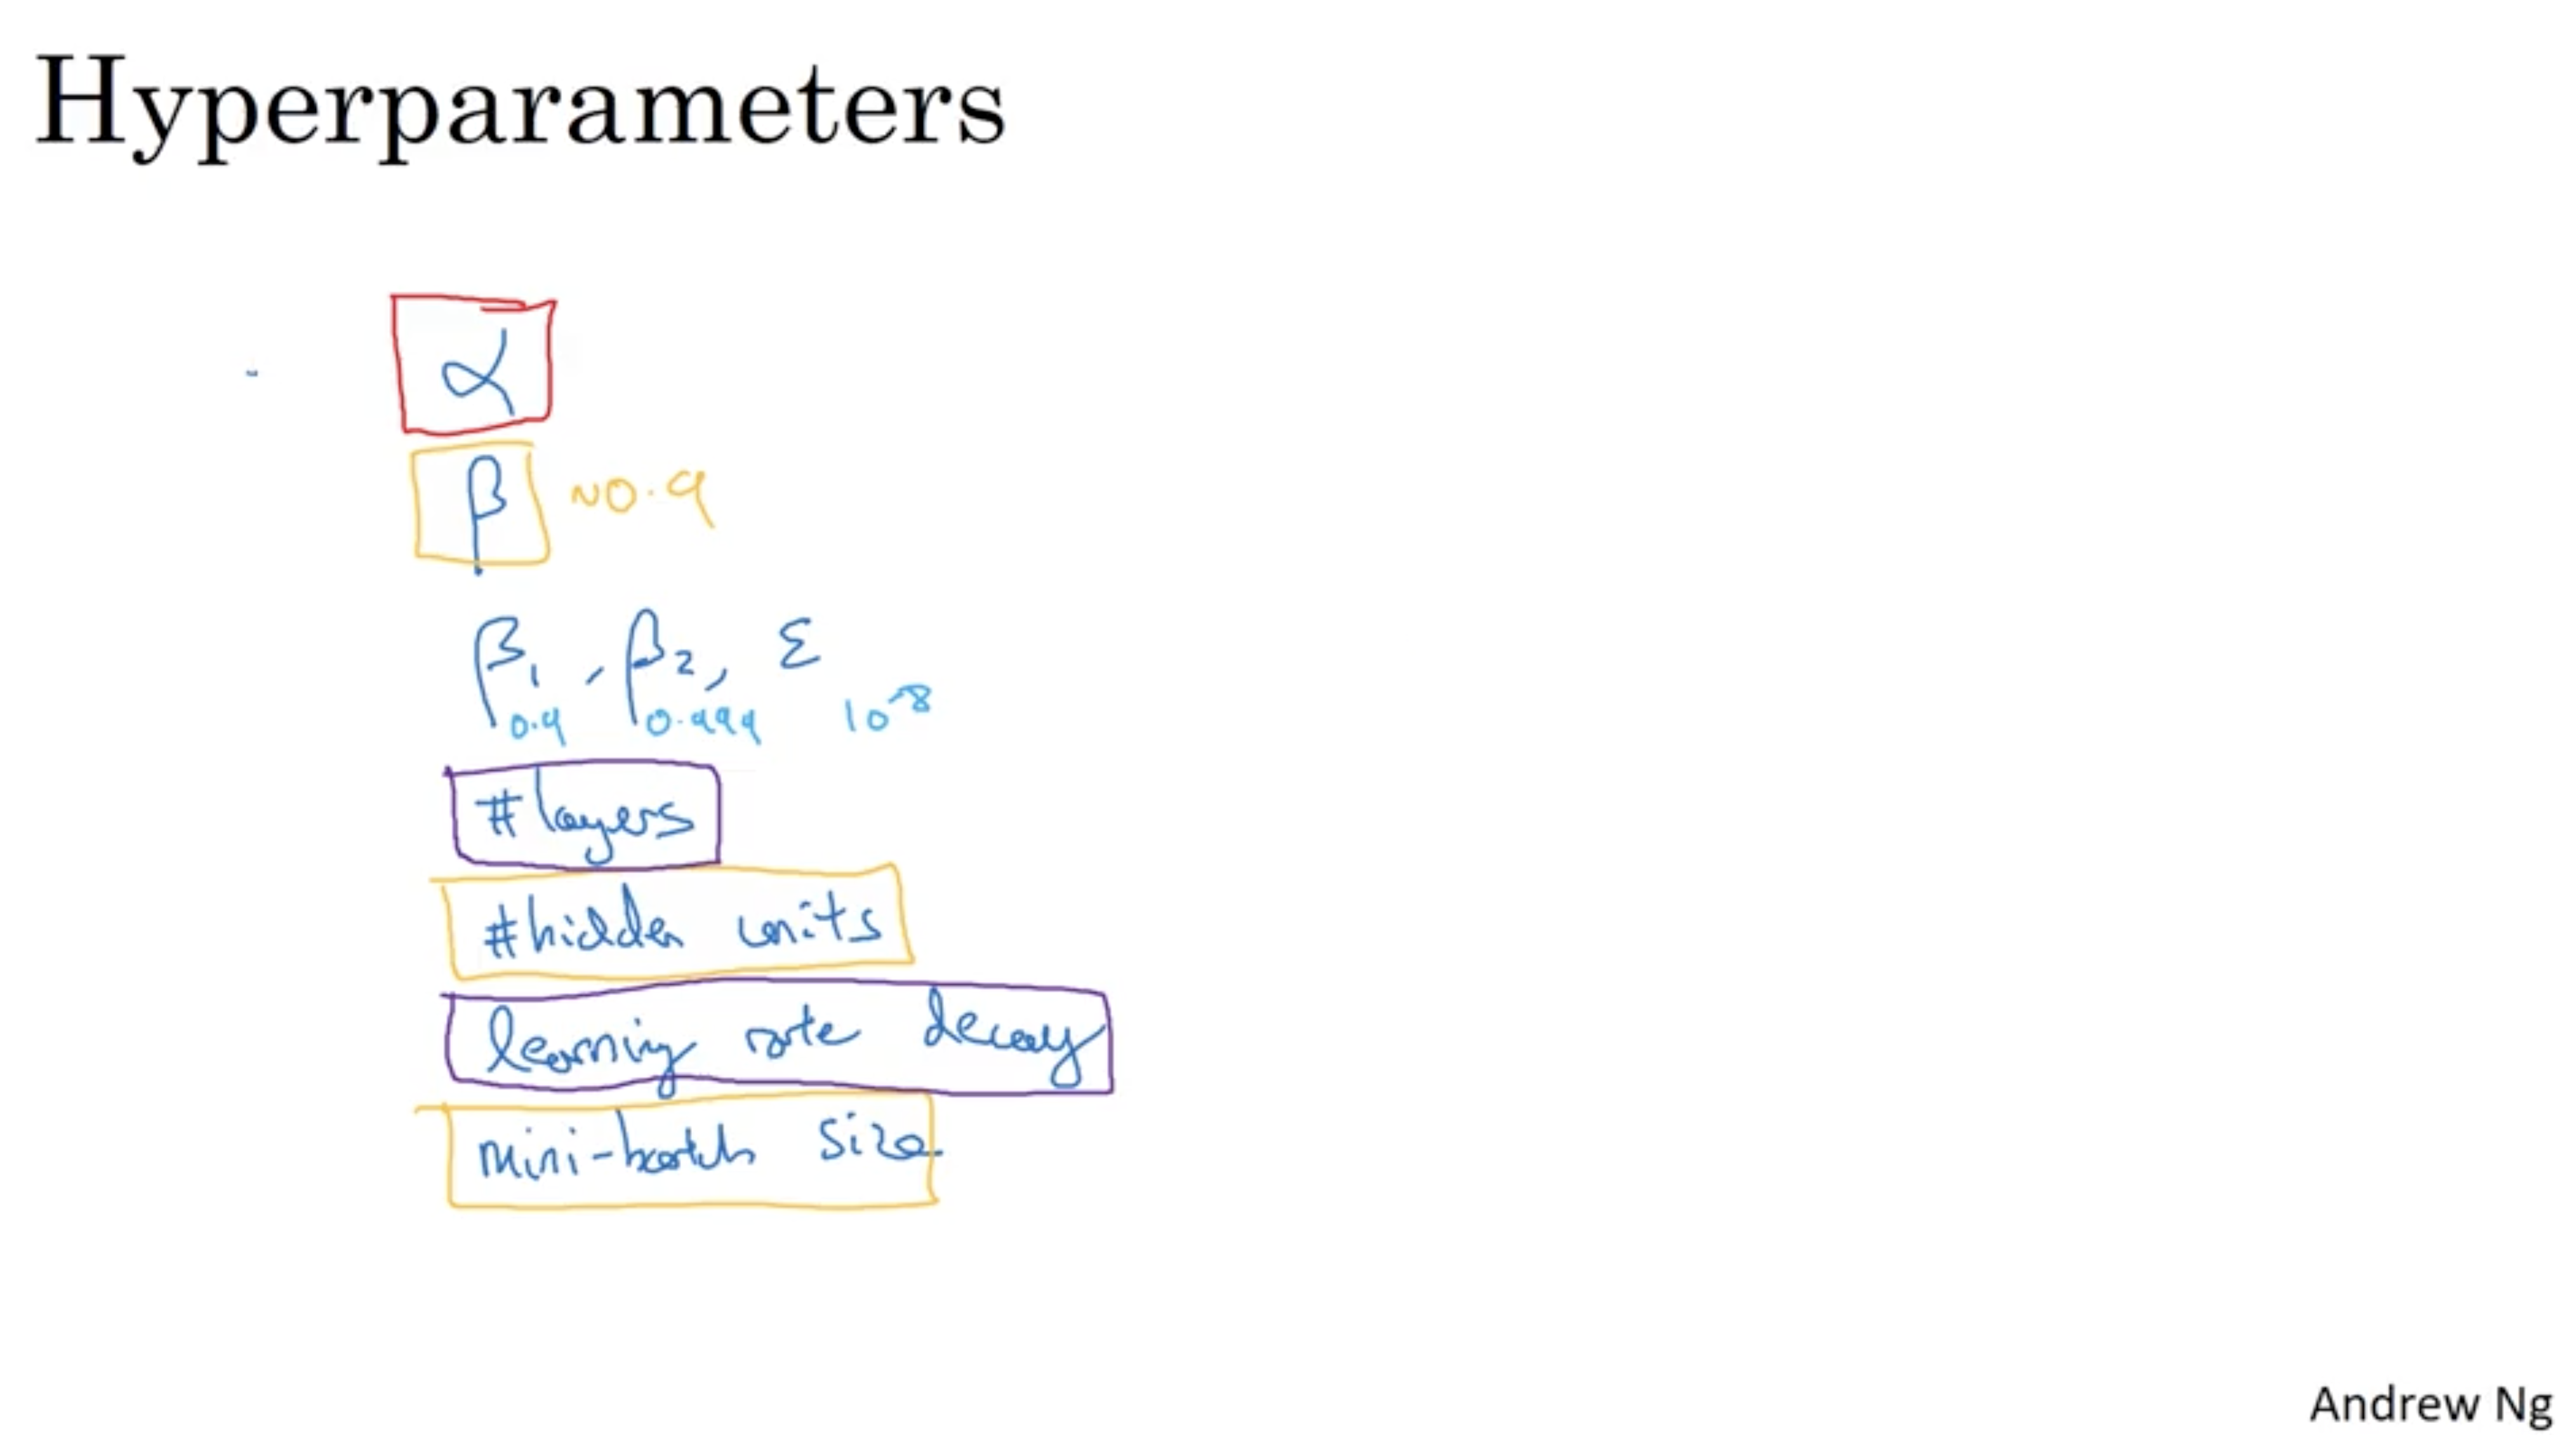 Hyperparameters
α
β ~0.9
β₁, β₂, ε
0.9 0.999 10⁻⁸
#layers
#hidden units
learning rate decay
mini-batch size
Andrew Ng